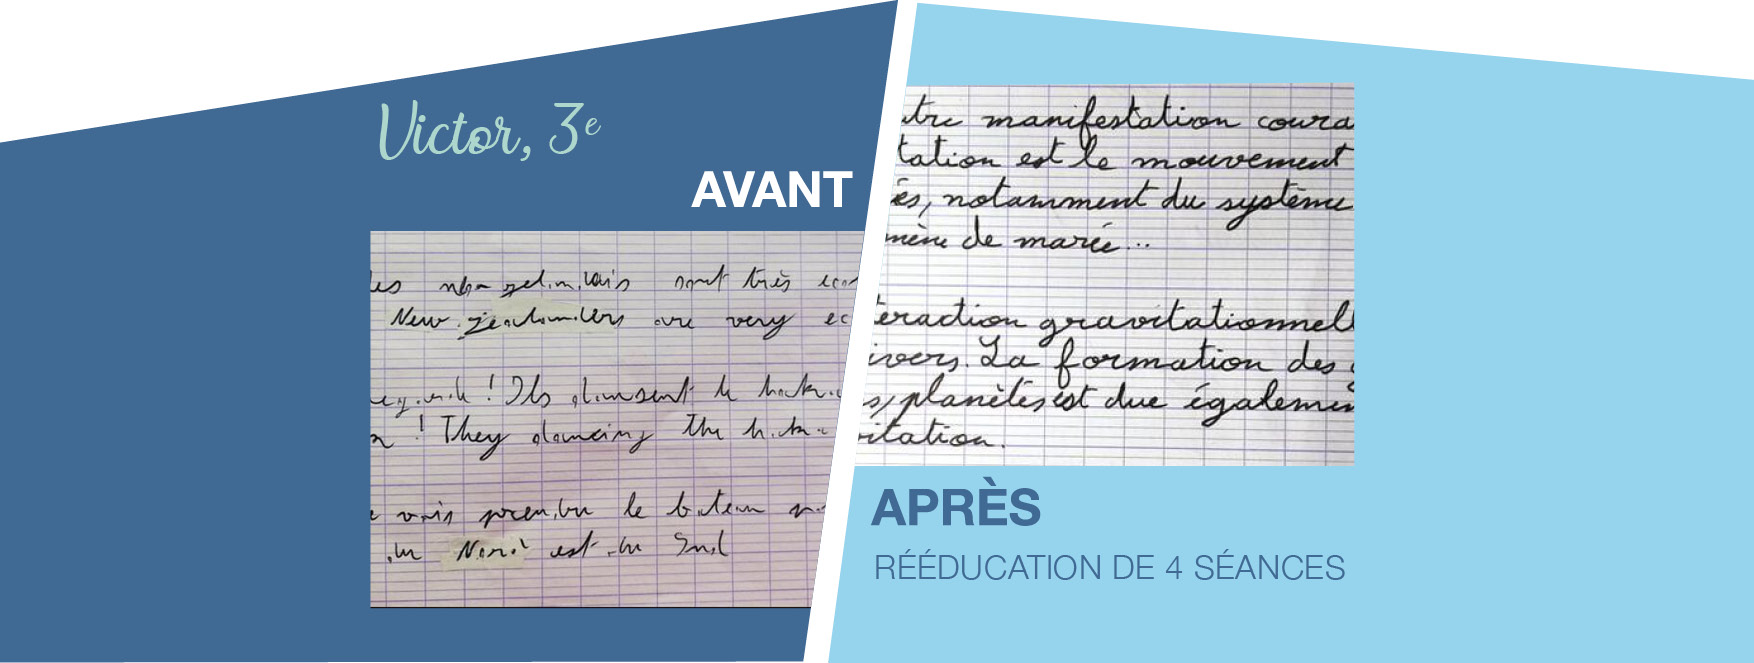 Victor, 3e
AVANT
les néo-zélandais sont très
New zealanders are very ec
! Ils dansent le haka
! They dancing the haka
vais prendre le bateau
au Nord est au Sud
tre manifestation coura
tation est le mouvement
és, notamment du système
mène de marée...
teraction gravitationnell
ivers. La formation des
s, planètes est due égalemen
vitation.
APRÈS
RÉÉDUCATION DE 4 SÉANCES